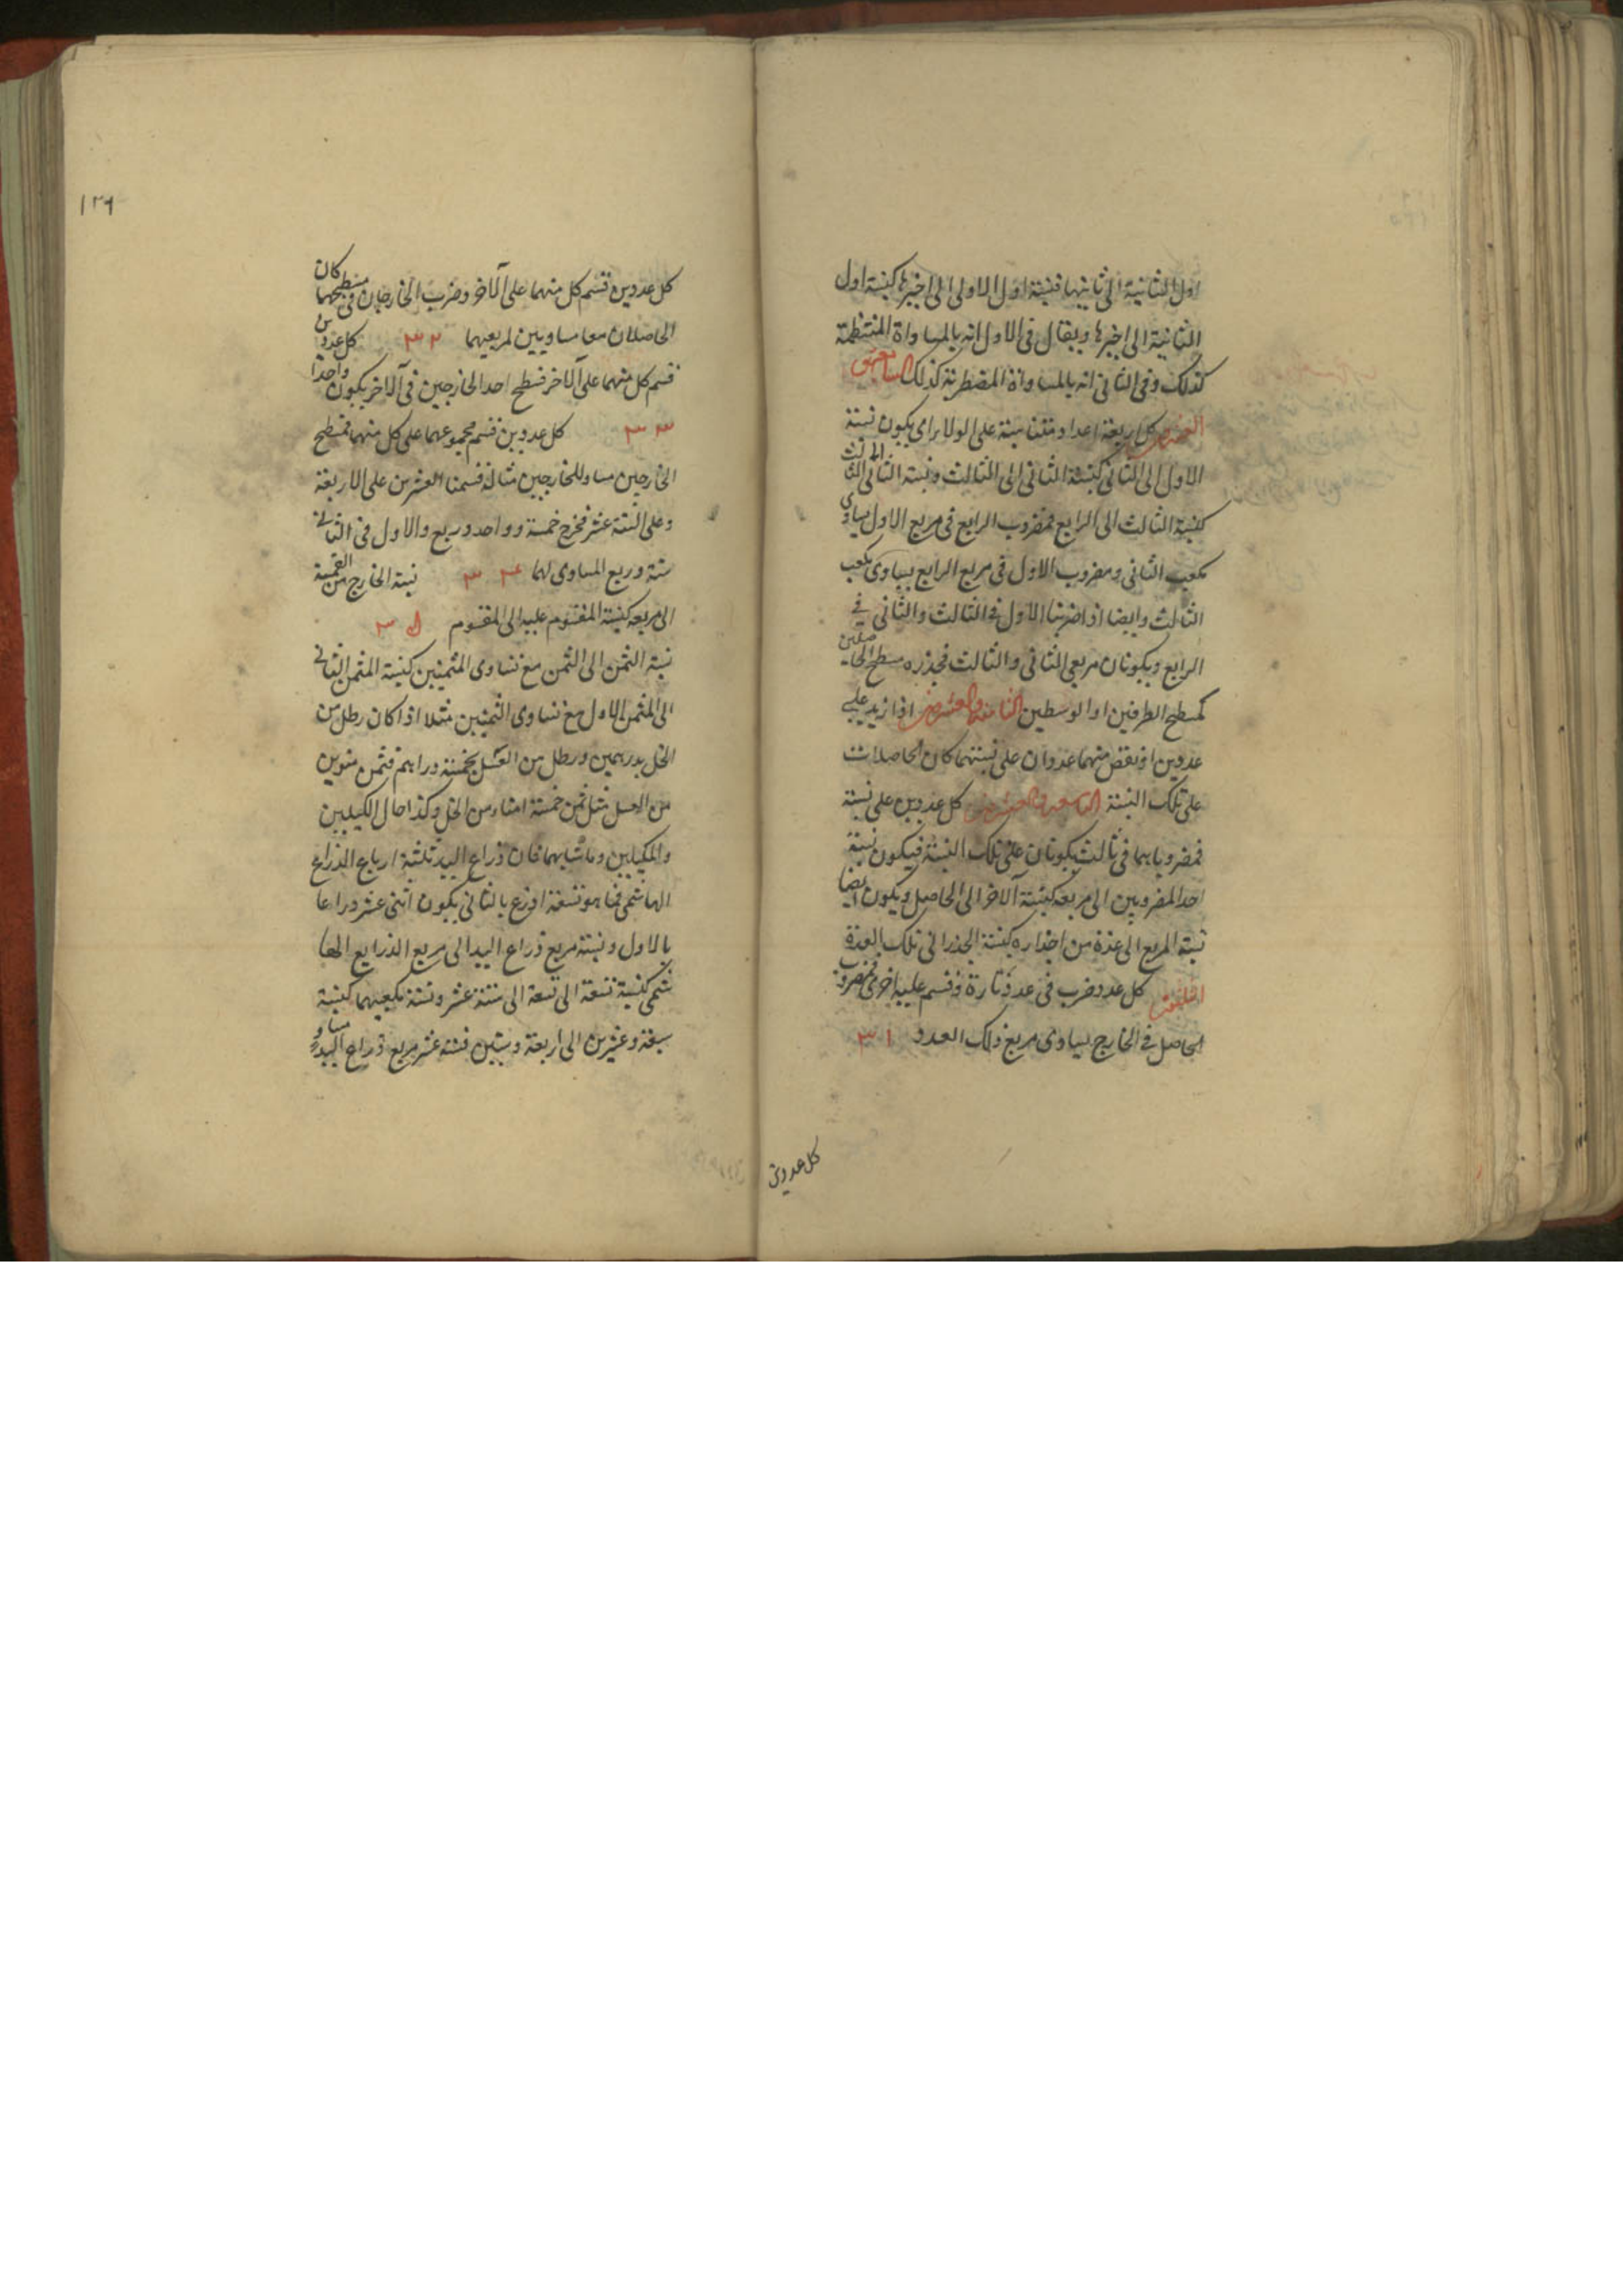 اول الثانية الى ثانيتها فنسبة اول الاولى الى اخيرها كنسبة اول
الثانية الى اخيرها ويقال فى الاول انه بالمساواة المنتظمة
كذلك وفى الثانى انه بالمساواة المضطربة كذلك
كل اربعة اعداد متناسبة على الولا اى يكون نسبة
الاول الى الثانى كنسبة الثانى الى الثالث ونسبة الثانى الى الثالث
كنسبة الثالث الى الرابع فمضروب الرابع فى مربع الاول يساوى
مكعب الثانى ومضروب الاول فى مربع الرابع يساوى مكعب
الثالث وايضا اذا ضربنا الاول فى الثالث والثانى فى
الرابع ويكونان مربعى الثانى والثالث فجذره مسطح الحاصلين
كمسطح الطرفين او الوسطين الثامنة والعشرون اذا زيد على
عددين او نقص منهما عددان على نسبتهما كان الحاصلات
على تلك النسبة التاسعة والعشرون كل عددين على نسبة
فمضروباهما فى ثالث يكونان على تلك النسبة فيكون نسبة
احد المضروبين الى مربعه كنسبة الآخر الى الحاصل ويكون ايضا
نسبة المربع الى عدة من اجذاره كنسبة الجذر الى تلك العدة
الثلثون كل عدد ضرب فى عدد تارة وقسم عليه اخرى فمضروب
الحاصل فى الخارج يساوى مربع ذلك العدد ٣١
كل عددين
١٢٦
كل عددين قسم كل منهما على الآخر وضرب الخارجان فى مسطحهما كان
الحاصلان معا مساويين لمربعيهما ٣٢ كل عددين
قسم كل منهما على الآخر فسطح احد الخارجين فى الآخر يكون واحدا
٣٣ كل عددين قسم مجموعهما على كل منهما فمسطح
الخارجين مساو للخارجين مثاله قسمنا العشرين على الاربعة
وعلى الستة عشر فخرج خمسة وواحد وربع والاول فى الثانى
ستة وربع المساوى لهما ٣٤ نسبة الخارج من القسمة
الى مربعه كنسبة المقسوم عليه الى المقسوم
نسبة الثمن الى الثمن مع تساوى المثمنين كنسبة المثمن الثانى
الى المثمن الاول مع تساوى الثمنين مثلا اذا كان رطل من
الخل بدرهمين ورطل من العسل بخمسة دراهم فثمن منوين
من العسل مثل ثمن خمسة امناء من الخل وكذا حال الكيلين
والمكيلين وما شابهها فان ذراع اليد ثلثة ارباع الذراع
الهاشمى فما هو تسعة اذرع بالثانى يكون اثنى عشر ذراعا
بالاول ونسبة مربع ذراع اليد الى مربع الذراع الها
شمى كنسبة تسعة الى ستة عشر ونسبة مكعبهما كنسبة
سبعة وعشرين الى اربعة وستين فستة عشر مربع ذراع اليد مساو